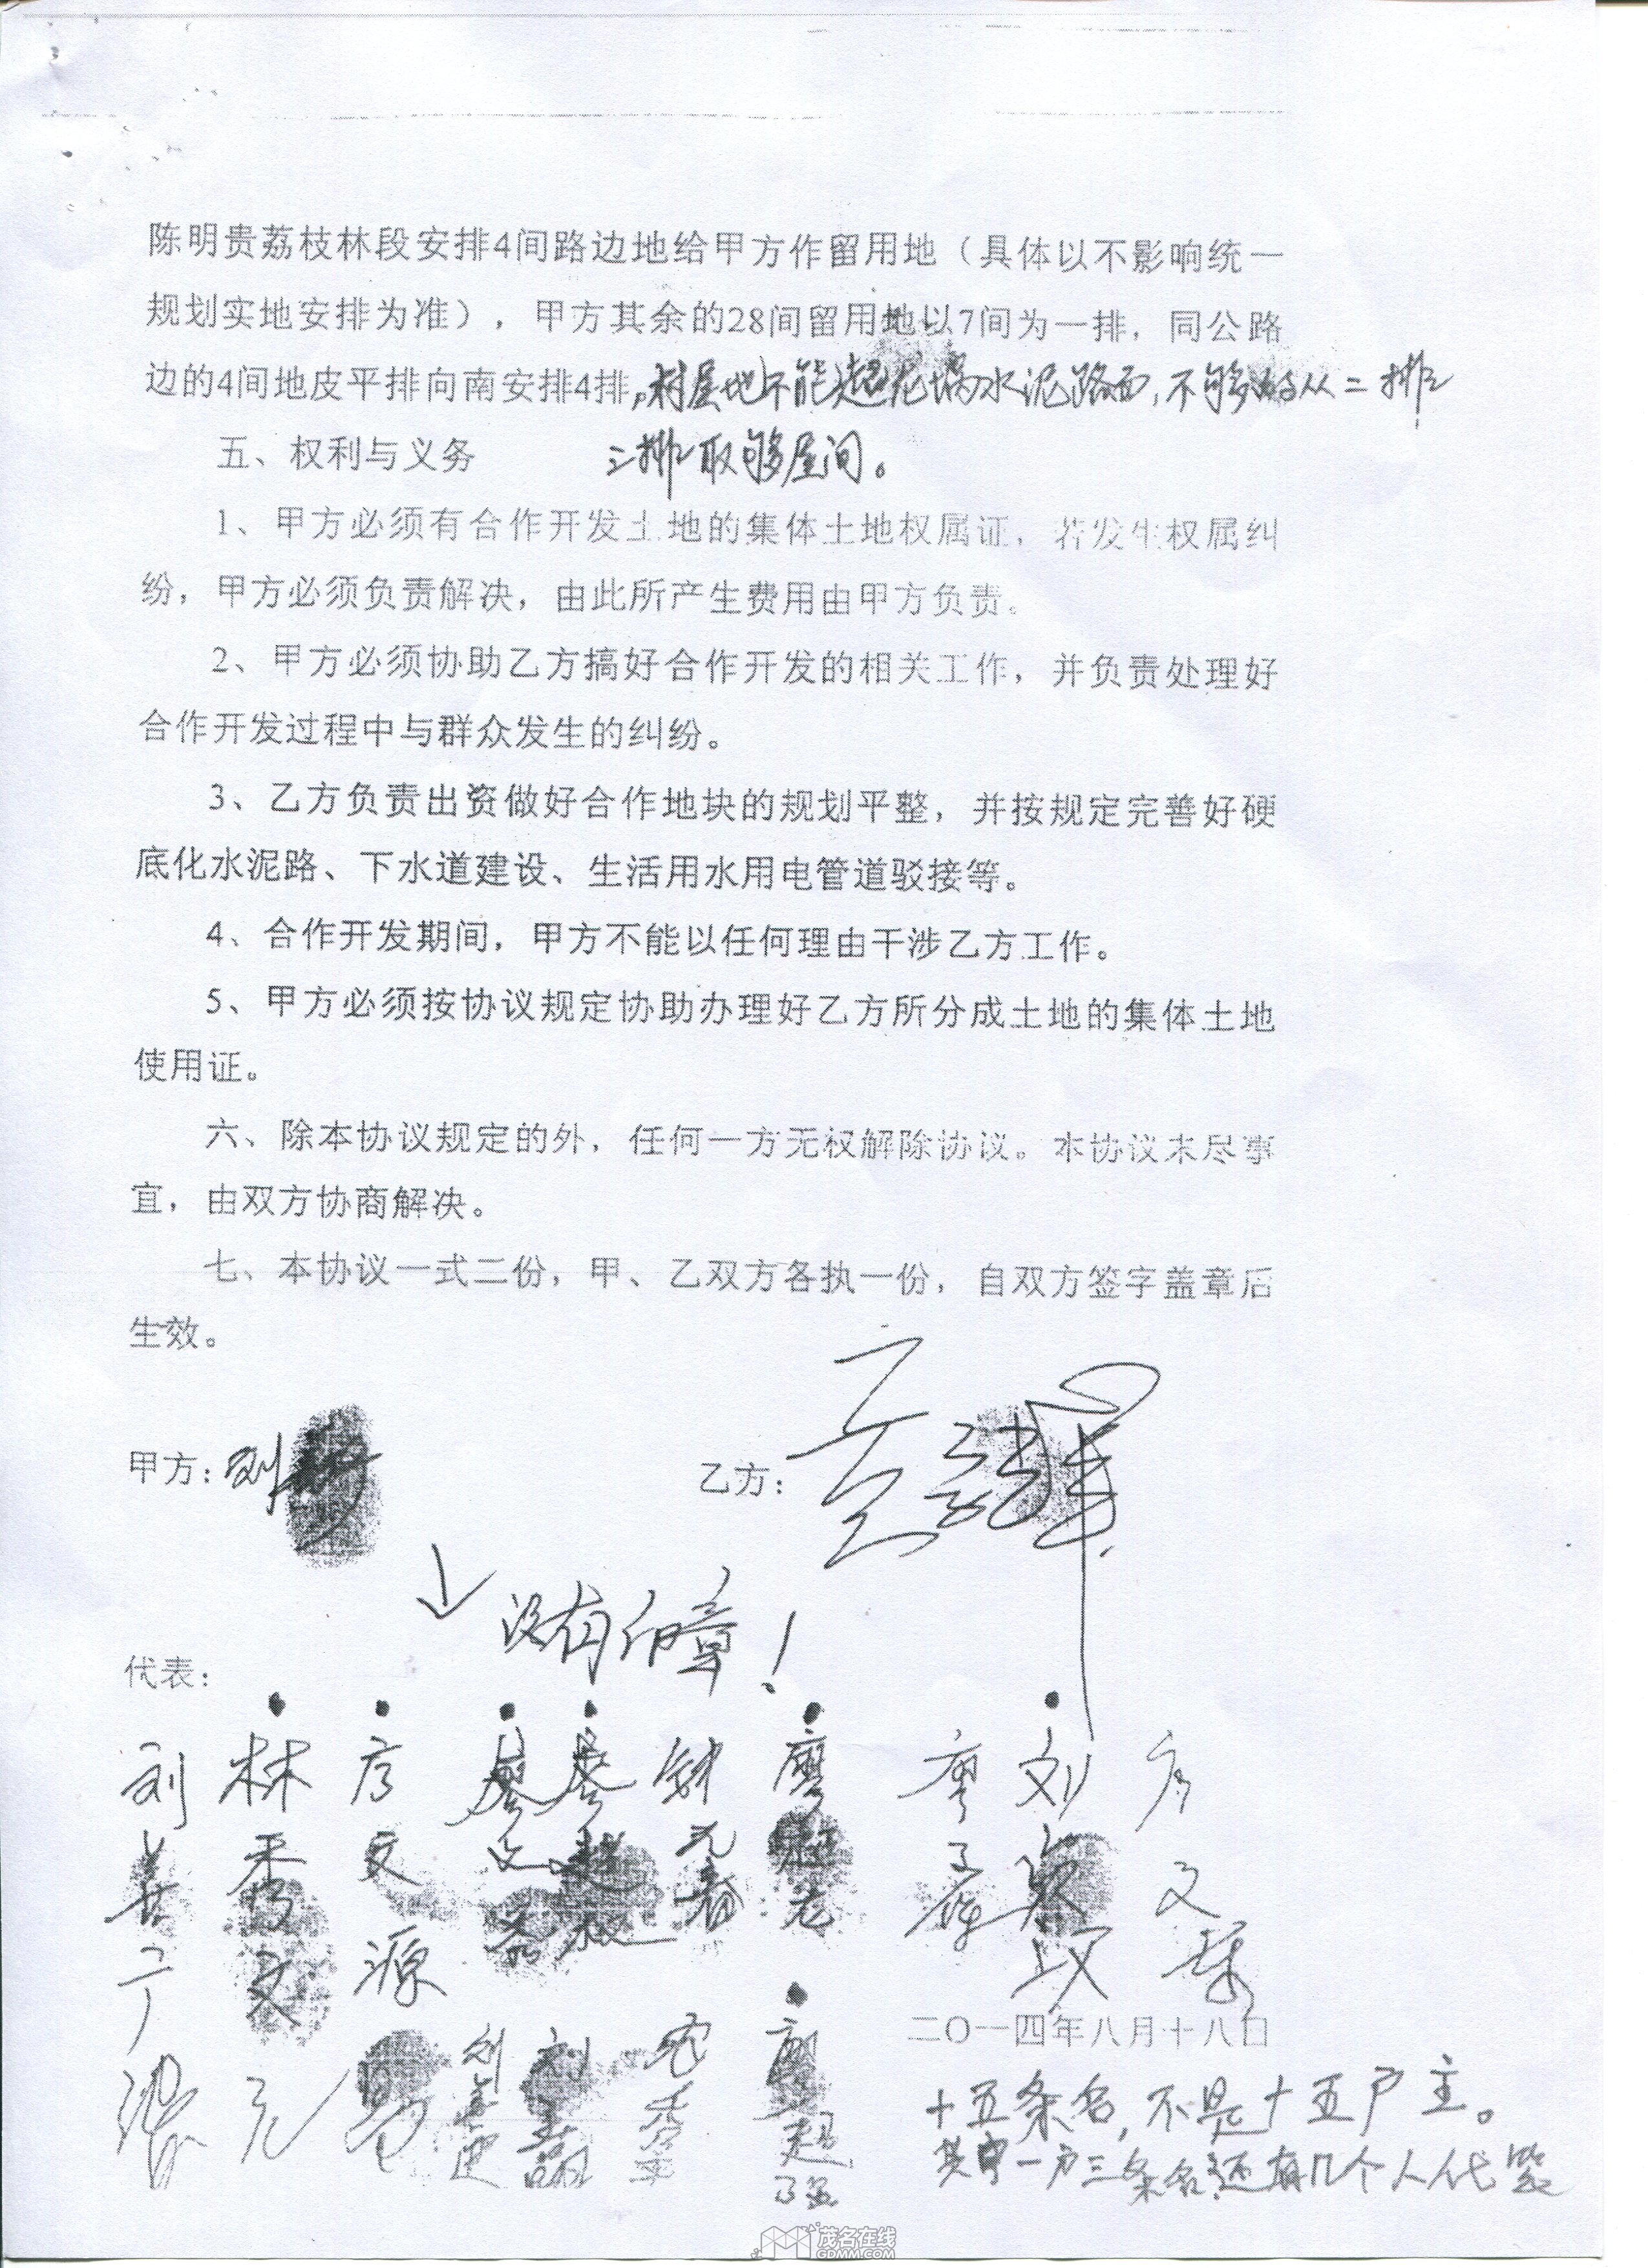 陈明贵荔枝林段安排4间路边地给甲方作留用地（具体以不影响统一
规划实地安排为准），甲方其余的28间留用地以7间为一排，同公路
边的4间地皮平排向南安排4排。村屋地不能超 水泥路面，不够的从二排
三排取够屋间。
五、权利与义务
1、甲方必须有合作开发土地的集体土地权属证，若发生权属纠
纷，甲方必须负责解决，由此所产生费用由甲方负责。
2、甲方必须协助乙方搞好合作开发的相关工作，并负责处理好
合作开发过程中与群众发生的纠纷。
3、乙方负责出资做好合作地块的规划平整，并按规定完善好硬
底化水泥路、下水道建设、生活用水用电管道驳接等。
4、合作开发期间，甲方不能以任何理由干涉乙方工作。
5、甲方必须按协议规定协助办理好乙方所分成土地的集体土地
使用证。
六、除本协议规定的外，任何一方无权解除协议。本协议未尽事
宜，由双方协商解决。
七、本协议一式二份，甲、乙双方各执一份，自双方签字盖章后
生效。
甲方：刘
乙方：
没有印章！
代表：
林秀文
文源
廖文
廖
钟元春
廖
廖
刘
文
刘
刘
廖超强
二〇一四年八月十八日
十五条名，不是十五户主。
其中一户三条名，还有几个人代签
茂名在线
GDMM.COM